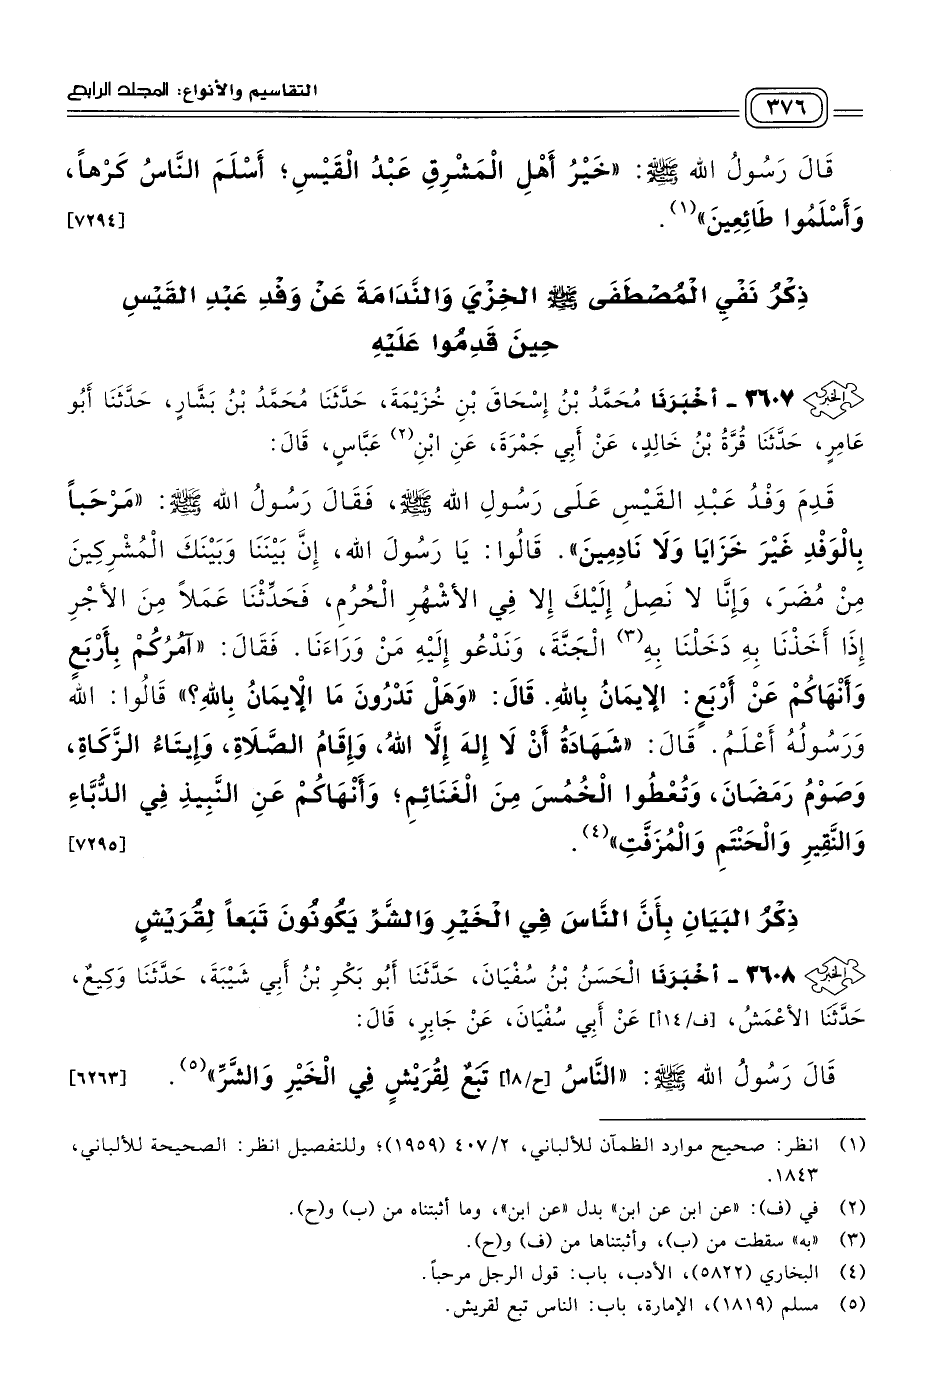 ٣٧٦ التقاسيم والأنواع: المجلد الرابع
قَالَ رَسُولُ الله ﷺ: «خَيْرُ أَهْلِ الْمَشْرِقِ عَبْدُ الْقَيْسِ؛ أَسْلَمَ النَّاسُ كَرْهاً،
وَأَسْلَمُوا طَائِعِينَ»(١). [٧٢٩٤]
ذِكْرُ نَفْيِ الْمُصْطَفَى ﷺ الخِزْيَ وَالنَّدَامَةَ عَنْ وَفْدِ عَبْدِ القَيْسِ
حِينَ قَدِمُوا عَلَيْهِ
٣٦٠٧ - أَخْبَرَنَا مُحَمَّدُ بْنُ إِسْحَاقَ بْنِ خُزَيْمَةَ، حَدَّثَنَا مُحَمَّدُ بْنُ بَشَّارٍ، حَدَّثَنَا أَبُو
عَامِرٍ، حَدَّثَنَا قُرَّةُ بْنُ خَالِدٍ، عَنْ أَبِي جَمْرَةَ، عَنِ ابْنِ(٢) عَبَّاسٍ، قَالَ:
قَدِمَ وَفْدُ عَبْدِ القَيْسِ عَلَى رَسُولِ الله ﷺ، فَقَالَ رَسُولُ الله ﷺ: «مَرْحَباً
بِالْوَفْدِ غَيْرَ خَزَايَا وَلَا نَادِمِينَ». قَالُوا: يَا رَسُولَ الله، إِنَّ بَيْنَنَا وَبَيْنَكَ الْمُشْرِكِينَ
مِنْ مُضَرَ، وَإِنَّا لا نَصِلُ إِلَيْكَ إِلا فِي الأَشْهُرِ الْحُرُمِ، فَحَدِّثْنَا عَمَلاً مِنَ الأَجْرِ
إِذَا أَخَذْنَا بِهِ دَخَلْنَا بِهِ(٣) الْجَنَّةَ، وَنَدْعُو إِلَيْهِ مَنْ وَرَاءَنَا. فَقَالَ: «آمُرُكُمْ بِأَرْبَعٍ
وَأَنْهَاكُمْ عَنْ أَرْبَعٍ: الإِيمَانُ بِاللهِ. قَالَ: «وَهَلْ تَدْرُونَ مَا الْإِيمَانُ بِاللهِ؟» قَالُوا: الله
وَرَسُولُهُ أَعْلَمُ. قَالَ: «شَهَادَةُ أَنْ لَا إِلهَ إِلَّا اللهُ، وَإِقَامُ الصَّلَاةِ، وَإِيتَاءُ الزَّكَاةِ،
وَصَوْمُ رَمَضَانَ، وَتُعْطُوا الْخُمْسَ مِنَ الْغَنَائِمِ؛ وَأَنْهَاكُمْ عَنِ النَّبِيذِ فِي الدُّبَّاءِ
وَالنَّقِيرِ وَالْحَنْتَمِ وَالْمُزَفَّتِ»(٤). [٧٢٩٥]
ذِكْرُ البَيَانِ بِأَنَّ النَّاسَ فِي الْخَيْرِ وَالشَّرِّ يَكُونُونَ تَبَعاً لِقُرَيْشٍ
٣٦٠٨ - أَخْبَرَنَا الْحَسَنُ بْنُ سُفْيَانَ، حَدَّثَنَا أَبُو بَكْرِ بْنُ أَبِي شَيْبَةَ، حَدَّثَنَا وَكِيعٌ،
حَدَّثَنَا الأَعْمَشُ، [ف/١٤أ] عَنْ أَبِي سُفْيَانَ، عَنْ جَابِرٍ، قَالَ:
قَالَ رَسُولُ الله ﷺ: «النَّاسُ [ح/٨أ] تَبَعٌ لِقُرَيْشٍ فِي الْخَيْرِ وَالشَّرِّ»(٥). [٦٢٦٣]
(١) انظر: صحيح موارد الظمآن للألباني، ٤٠٧/٢ (١٩٥٩)؛ وللتفصيل انظر: الصحيحة للألباني،
١٨٤٣.
(٢) في (ف): «عن ابن عن ابن» بدل «عن ابن»، وما أثبتناه من (ب) و(ح).
(٣) «به» سقطت من (ب)، وأثبتناها من (ف) و(ح).
(٤) البخاري (٥٨٢٢)، الأدب، باب: قول الرجل مرحباً.
(٥) مسلم (١٨١٩)، الإمارة، باب: الناس تبع لقريش.